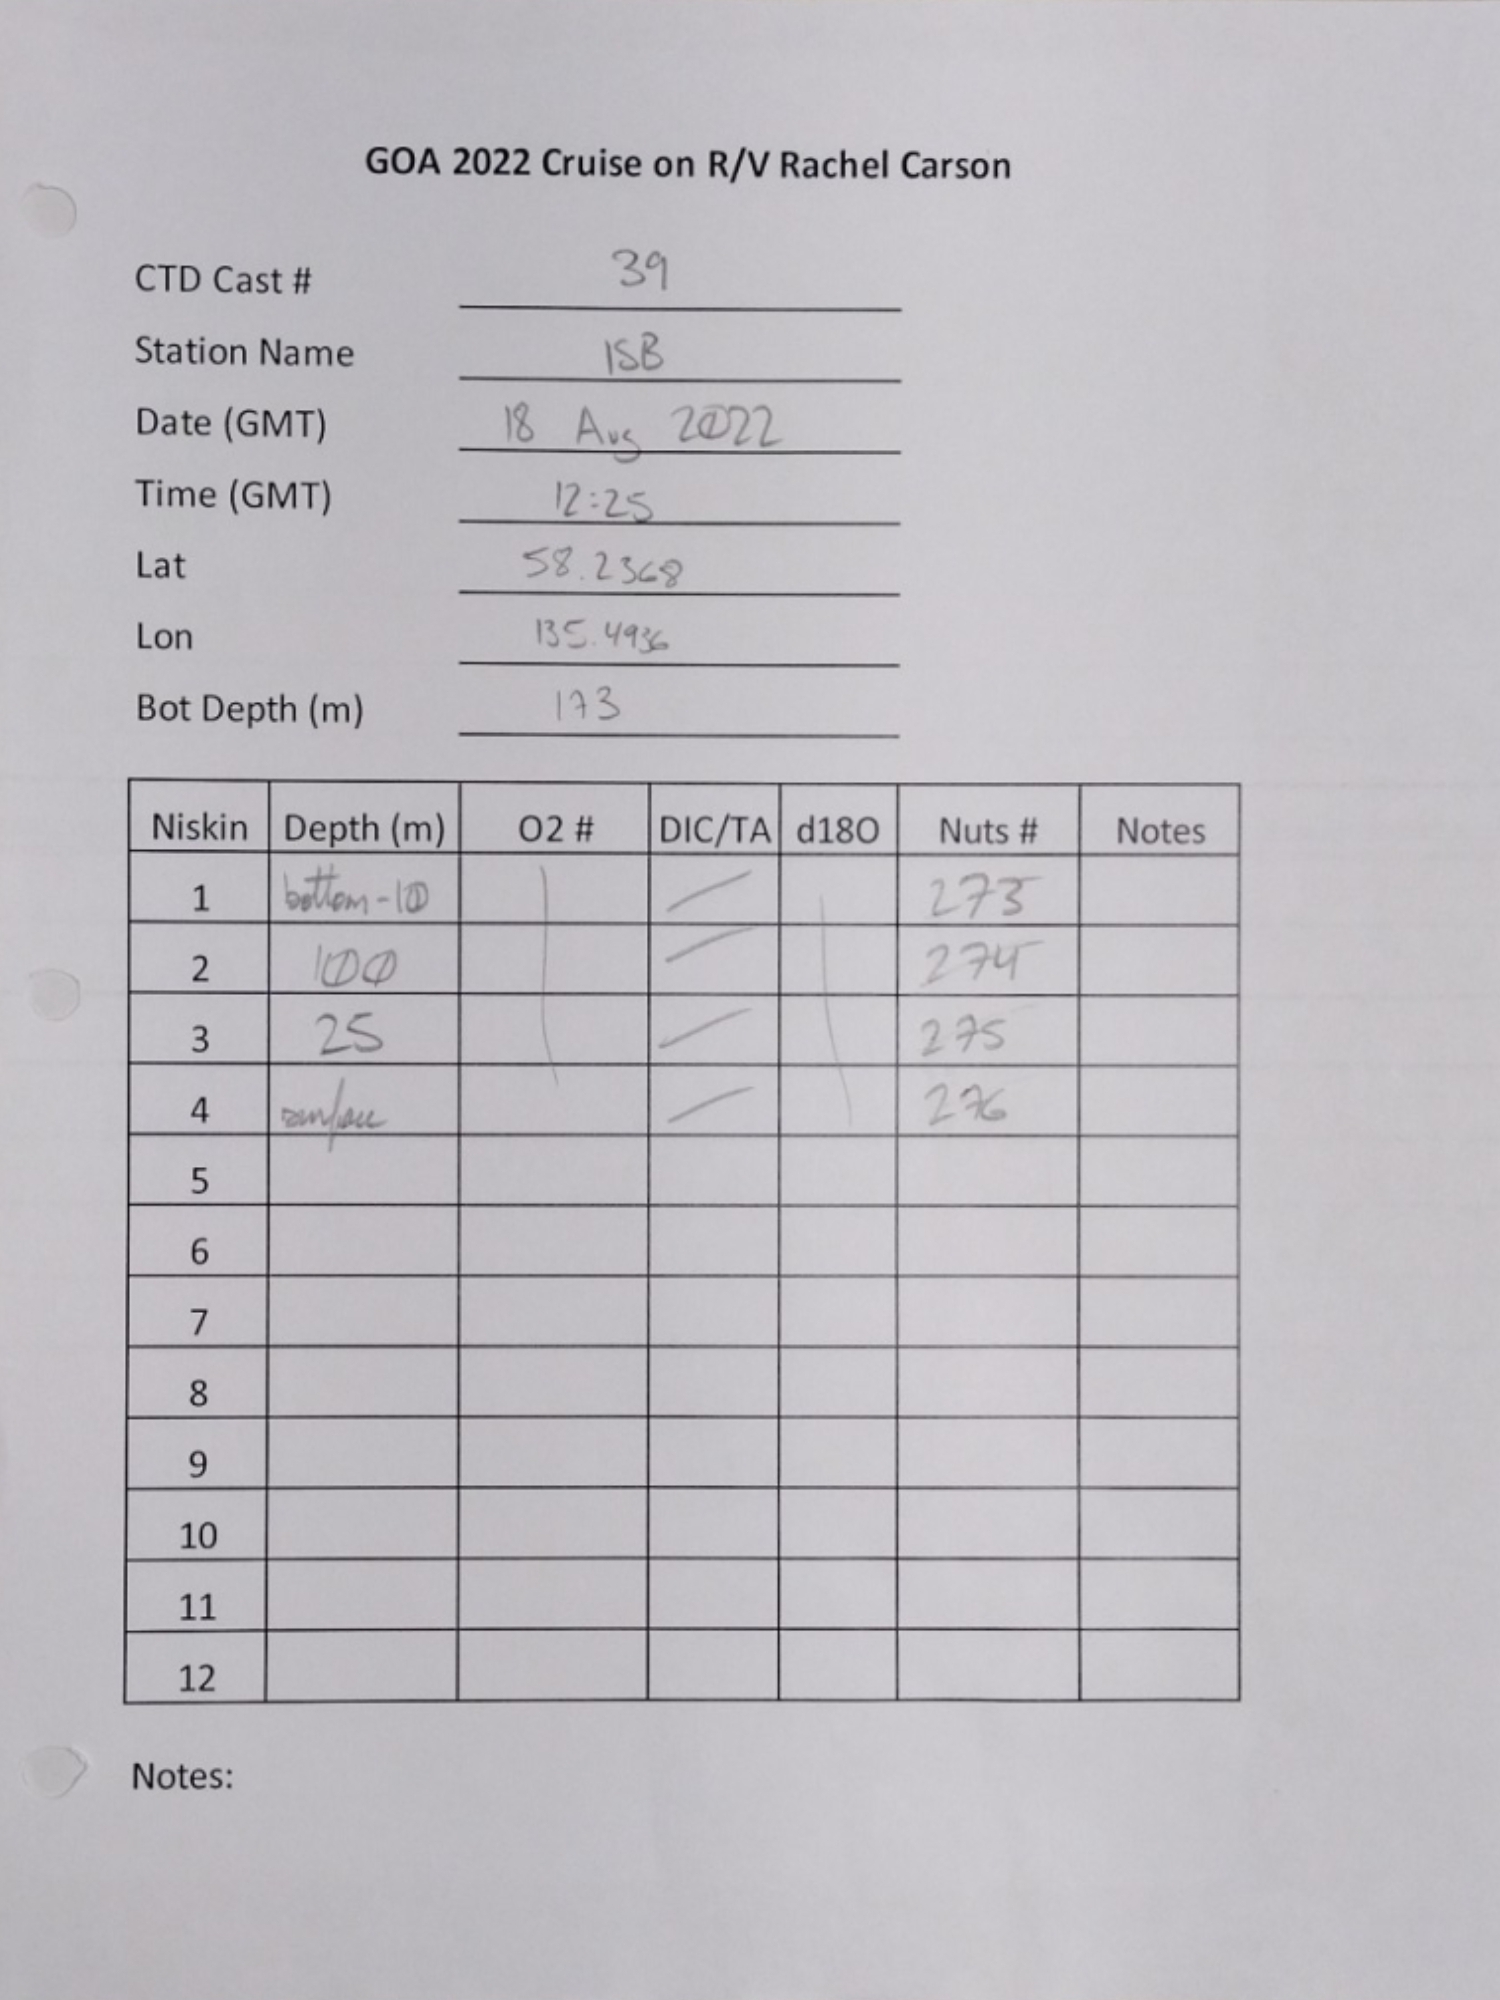 GOA 2022 Cruise on R/V Rachel Carson
CTD Cast # 39
Station Name ISB
Date (GMT) 18 Aug 2022
Time (GMT) 12:25
Lat 58.2368
Lon 135.4936
Bot Depth (m) 173
Niskin Depth (m) O2 # DIC/TA d18O Nuts # Notes
1 bottom-10 273
2 100 274
3 25 275
4 surface 276
5
6
7
8
9
10
11
12
Notes: